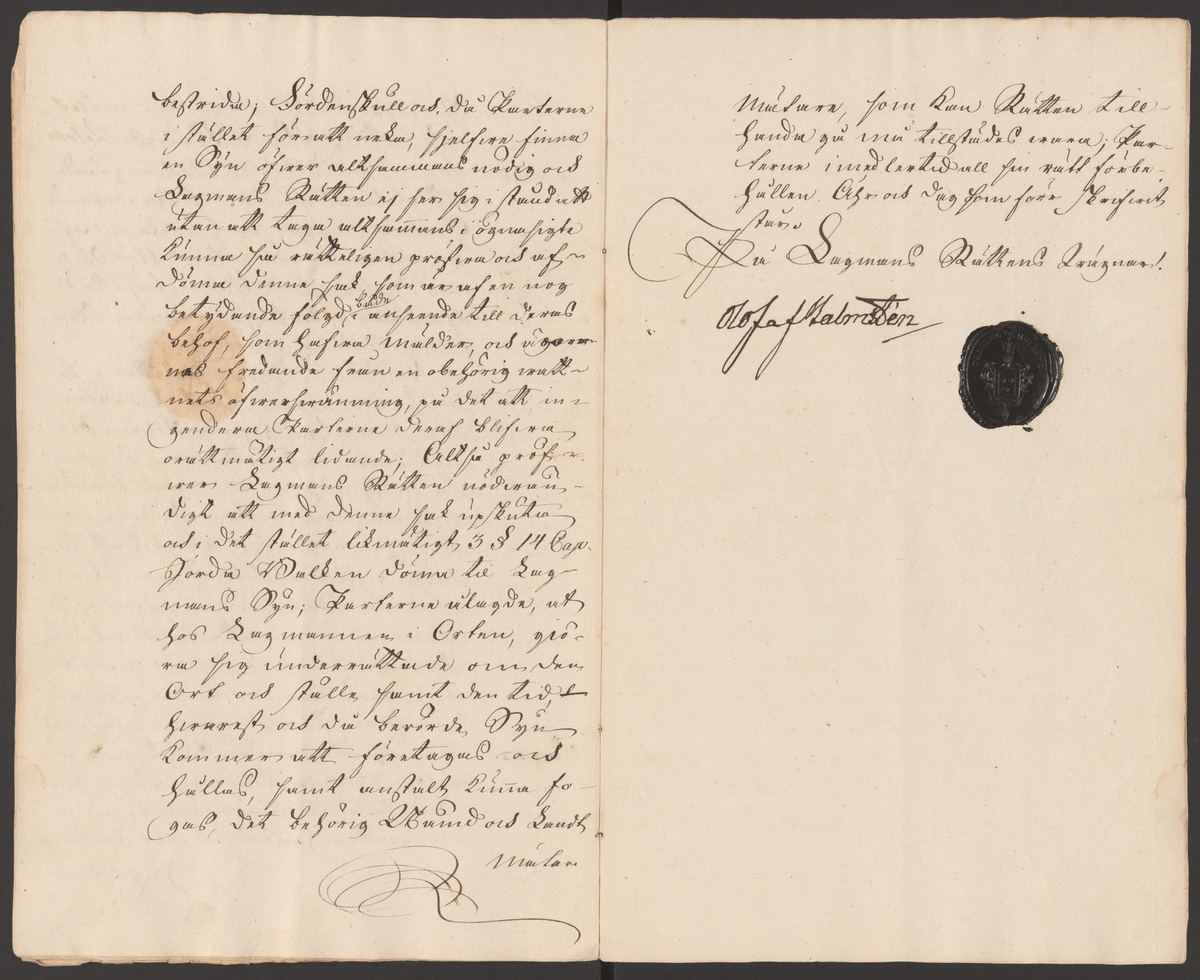 bestrida; Fördenskull och, då Parterne
i stället för att neka, sjelfve finna
en Syn öfver altsammans nödig och
Lagmans Rätten ej ser sig i stånd att
utan att taga altsammans i ögnasigte
kunna så rätteligen pröfva och af-
döma denne sak som är af en nog
betydande fölgd, både i anseende till deras
behof, som hafva Mälder, och ägarr-
nes fredande från en obehörig watt-
nets öfversvämning, på det att in-
gendera Parterne deraf blifva
orättmätigt lidande; Altså pröf-
wer Lagmans Rätten nödvän-
digt att med denne sak upskuta
och i det stället likmätigt 3 § 14 Cap.
Jorda Balken döma til Lag-
mans Syn; Parterne ålagde, at
hos Lagmannen i Orten, giö-
ra sig underrättade om den
Ort och ställe samt den tid,
hvarest och då berörde Syn
kommer att företagas och
hållas, samt anstalt kunna fo-
gas, det behörig Nämd och Landt
Mätare
Mätare, som kan Rätten till-
handa gå må tillstädes wara; Par-
terne imedlertid all sin rätt förbe-
hållen. Åhr och dag som förr skrifvit
står.
På Lagmans Rättens Wägnar.
Olof af Malmstén